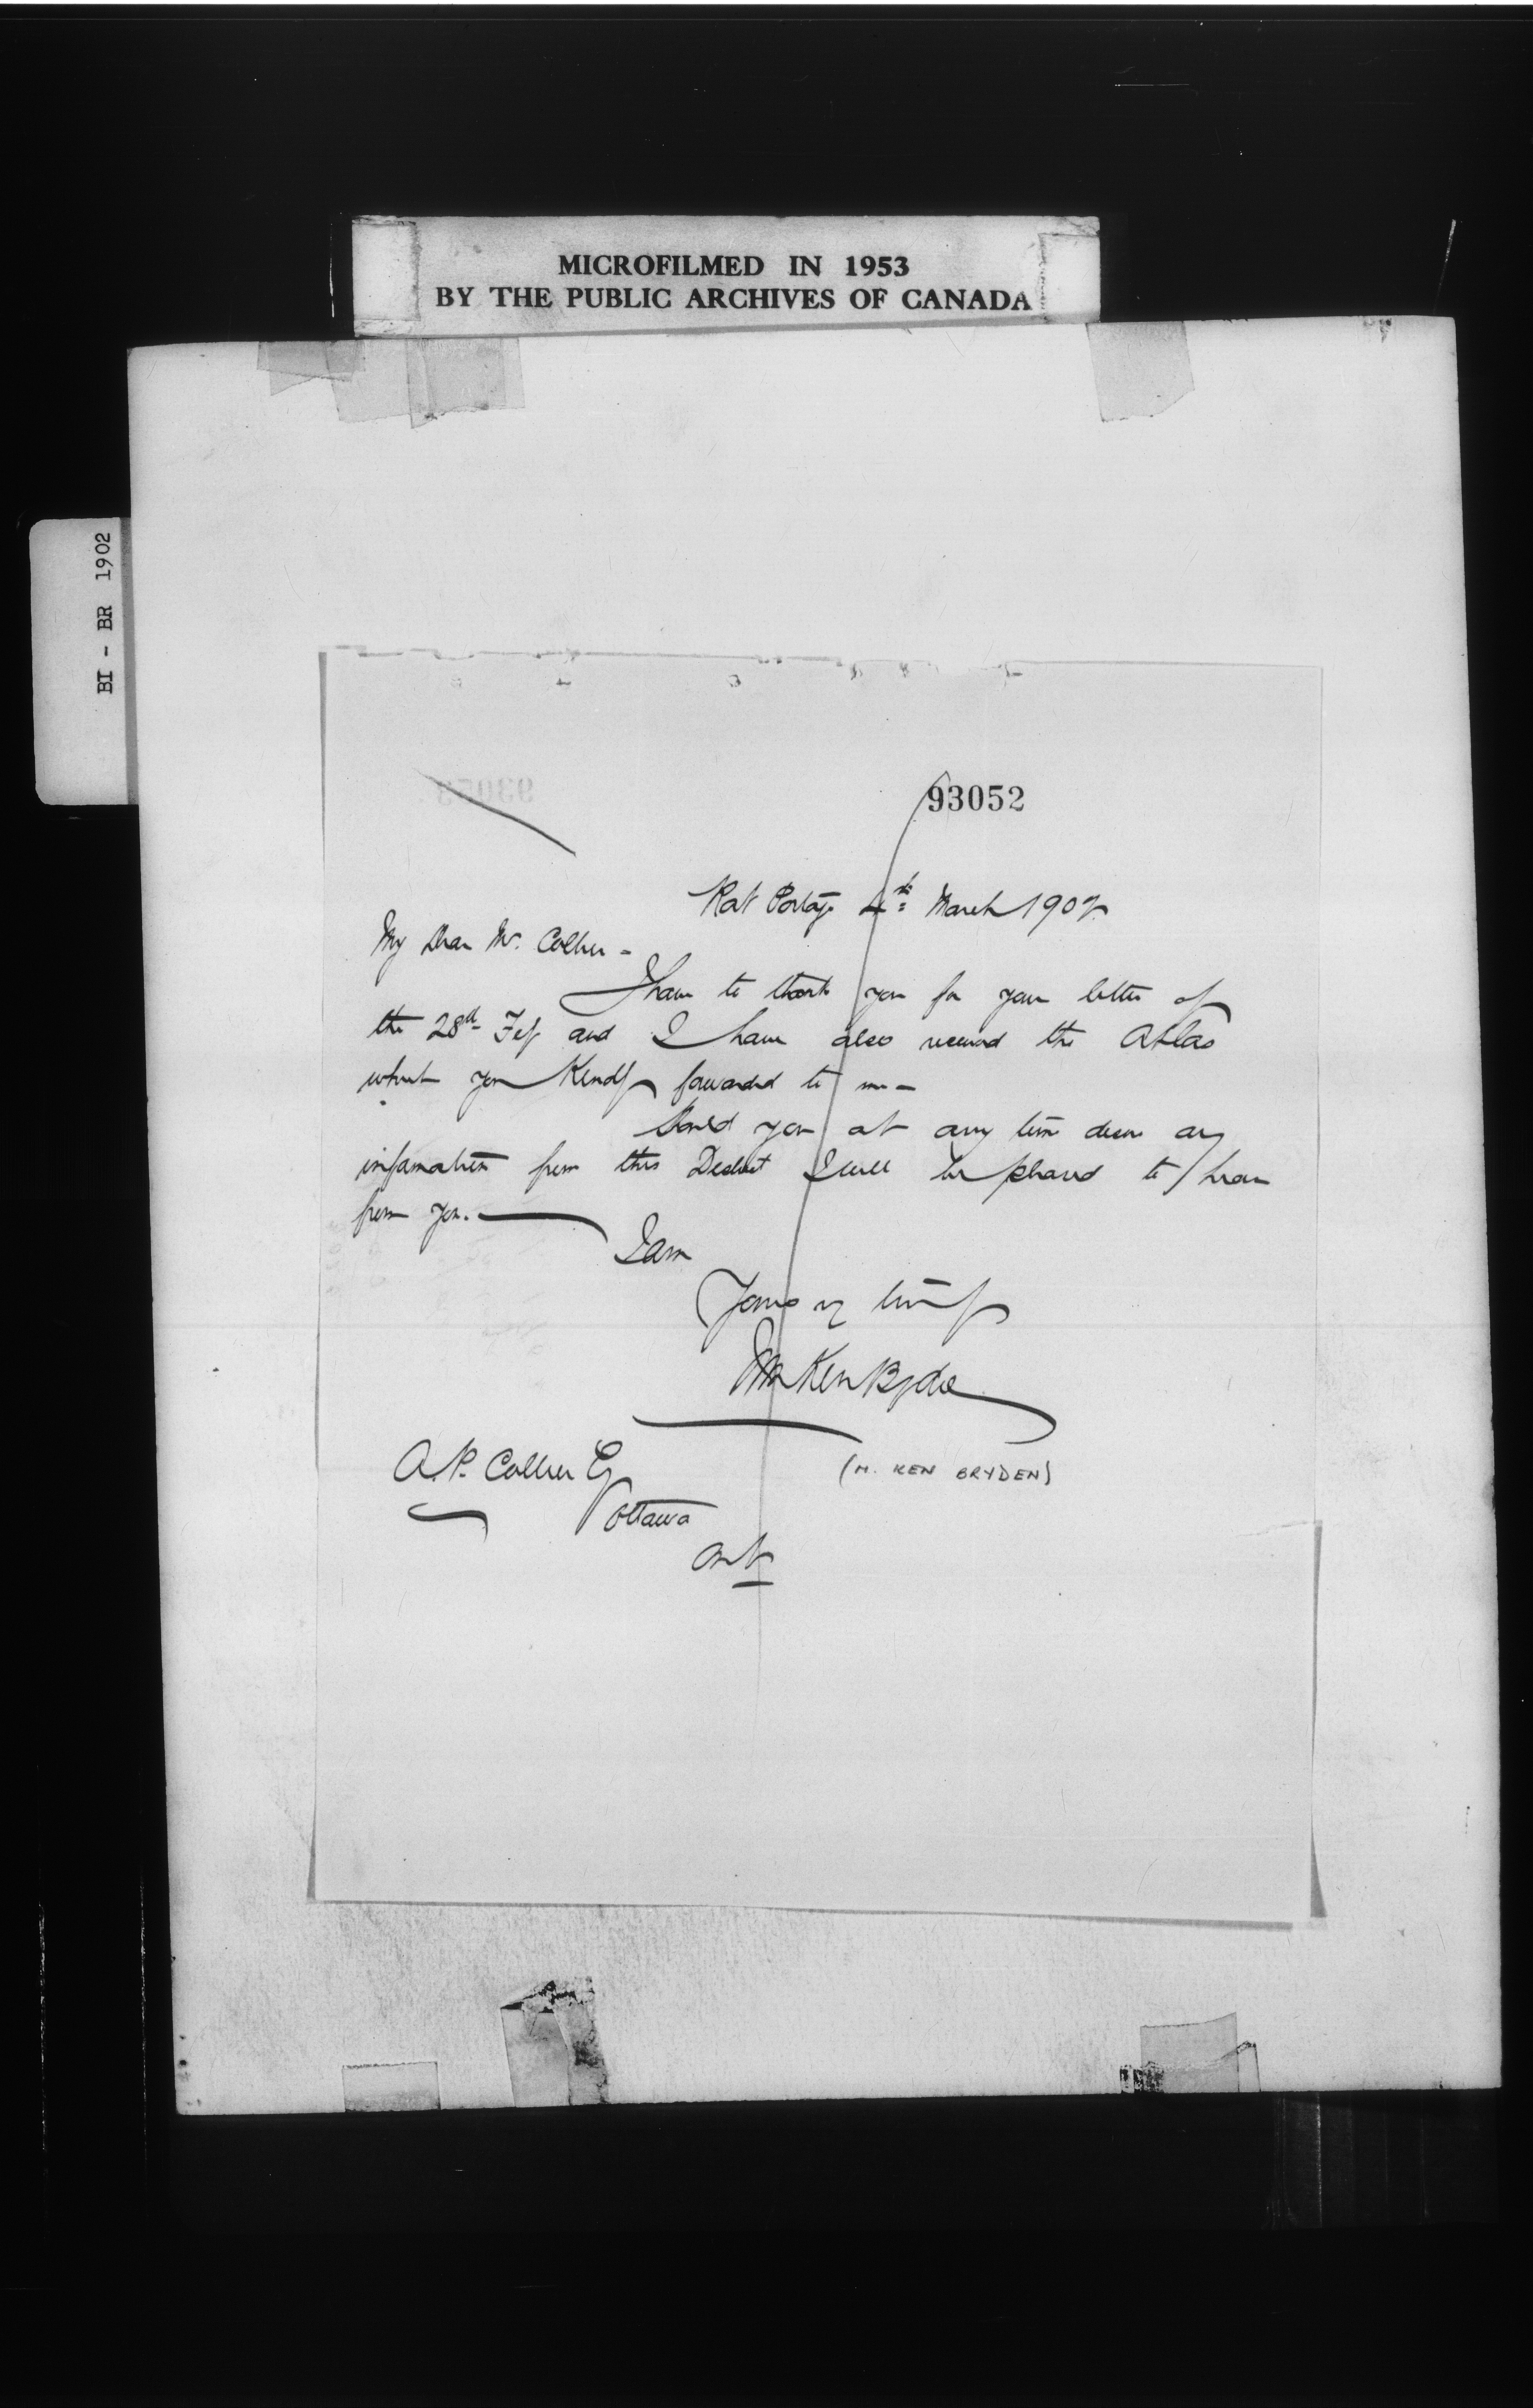 MICROFILMED IN 1953
BY THE PUBLIC ARCHIVES OF CANADA
BI - BR 1902
93052
Rat Portage 4th March 1902
My Dear Mr. Collier -
I have to thank you for your letter of
the 28th Feby and I have also received the Atlas
which you Kindly forwarded to me -
Should you at any time desire any
information from this District I will be pleased to hear
from you.
I am
Yours truly
Ken Bryden
(M. KEN BRYDEN)
A.P. Collier Esq
Ottawa
Ont